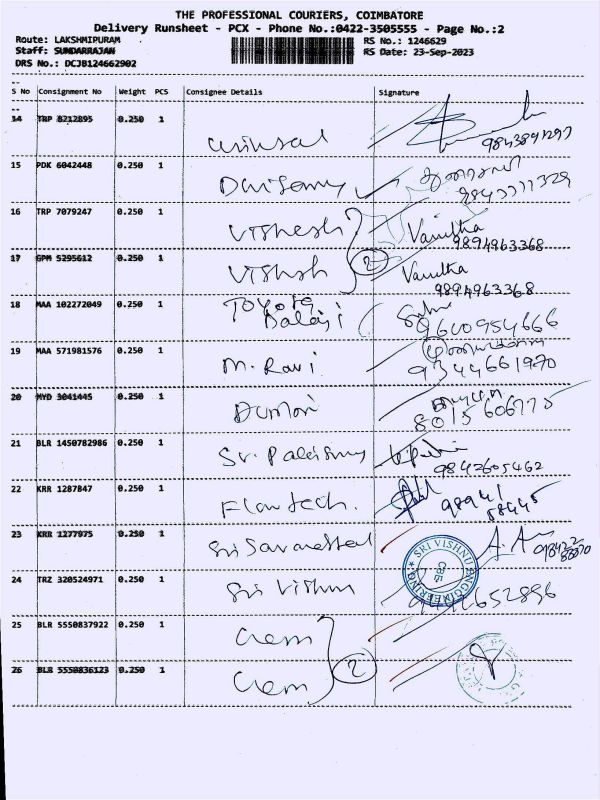 THE PROFESSIONAL COURIERS, COIMBATORE
Delivery Runsheet - PCX - Phone No.:0422-3505555 - Page No.:2
Route: LAKSHMIPURAM RS No.: 1246629
Staff: SUNDARRAJAN RS Date: 23-Sep-2023
DRS No.: DCJB124662902
S No Consignment No Weight PCS Consignee Details Signature
14 TRP 8212895 0.250 1 9843841297
15 PDK 6042448 0.250 1
16 TRP 7079247 0.250 1 Vignesh Vanitha
9894963368
17 GPM 5295612 0.250 1 Vanitha
2
9894963368
18 MAA 102272049 0.250 1 Toyota
Balaji 9600954666
19 MAA 571981576 0.250 1 M. Ravi 9344661970
20 MYD 3041445 0.250 1 8015606775
21 BLR 1450782986 0.250 1 9842605462
22 KRR 1287847 0.250 1 Flowtech. 98941
58445
23 KRR 1277975 0.250 1
SRI VISHNU ENGINEERING
CBE
24 TRZ 320524971 0.250 1 Sri Vishnu
25 BLR 5550837922 1 Gem
2
26 BLR 5550836123 0.250 1 Gem